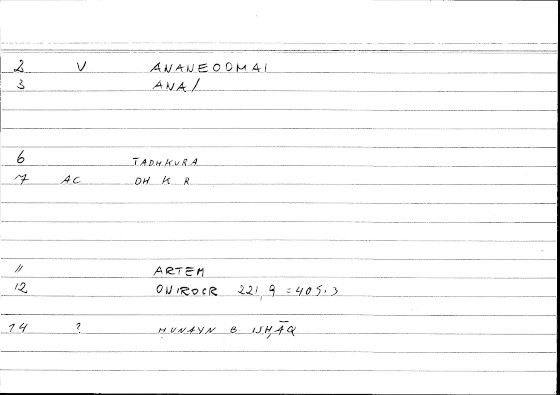 2 V ANANEOOMAI
3 ANA/
6 TADHKURA
7 AC DH K R
11 ARTEM
12 ONIROCR 221,9 = 405,3
14 ? HUNAYN B ISḤĀQ